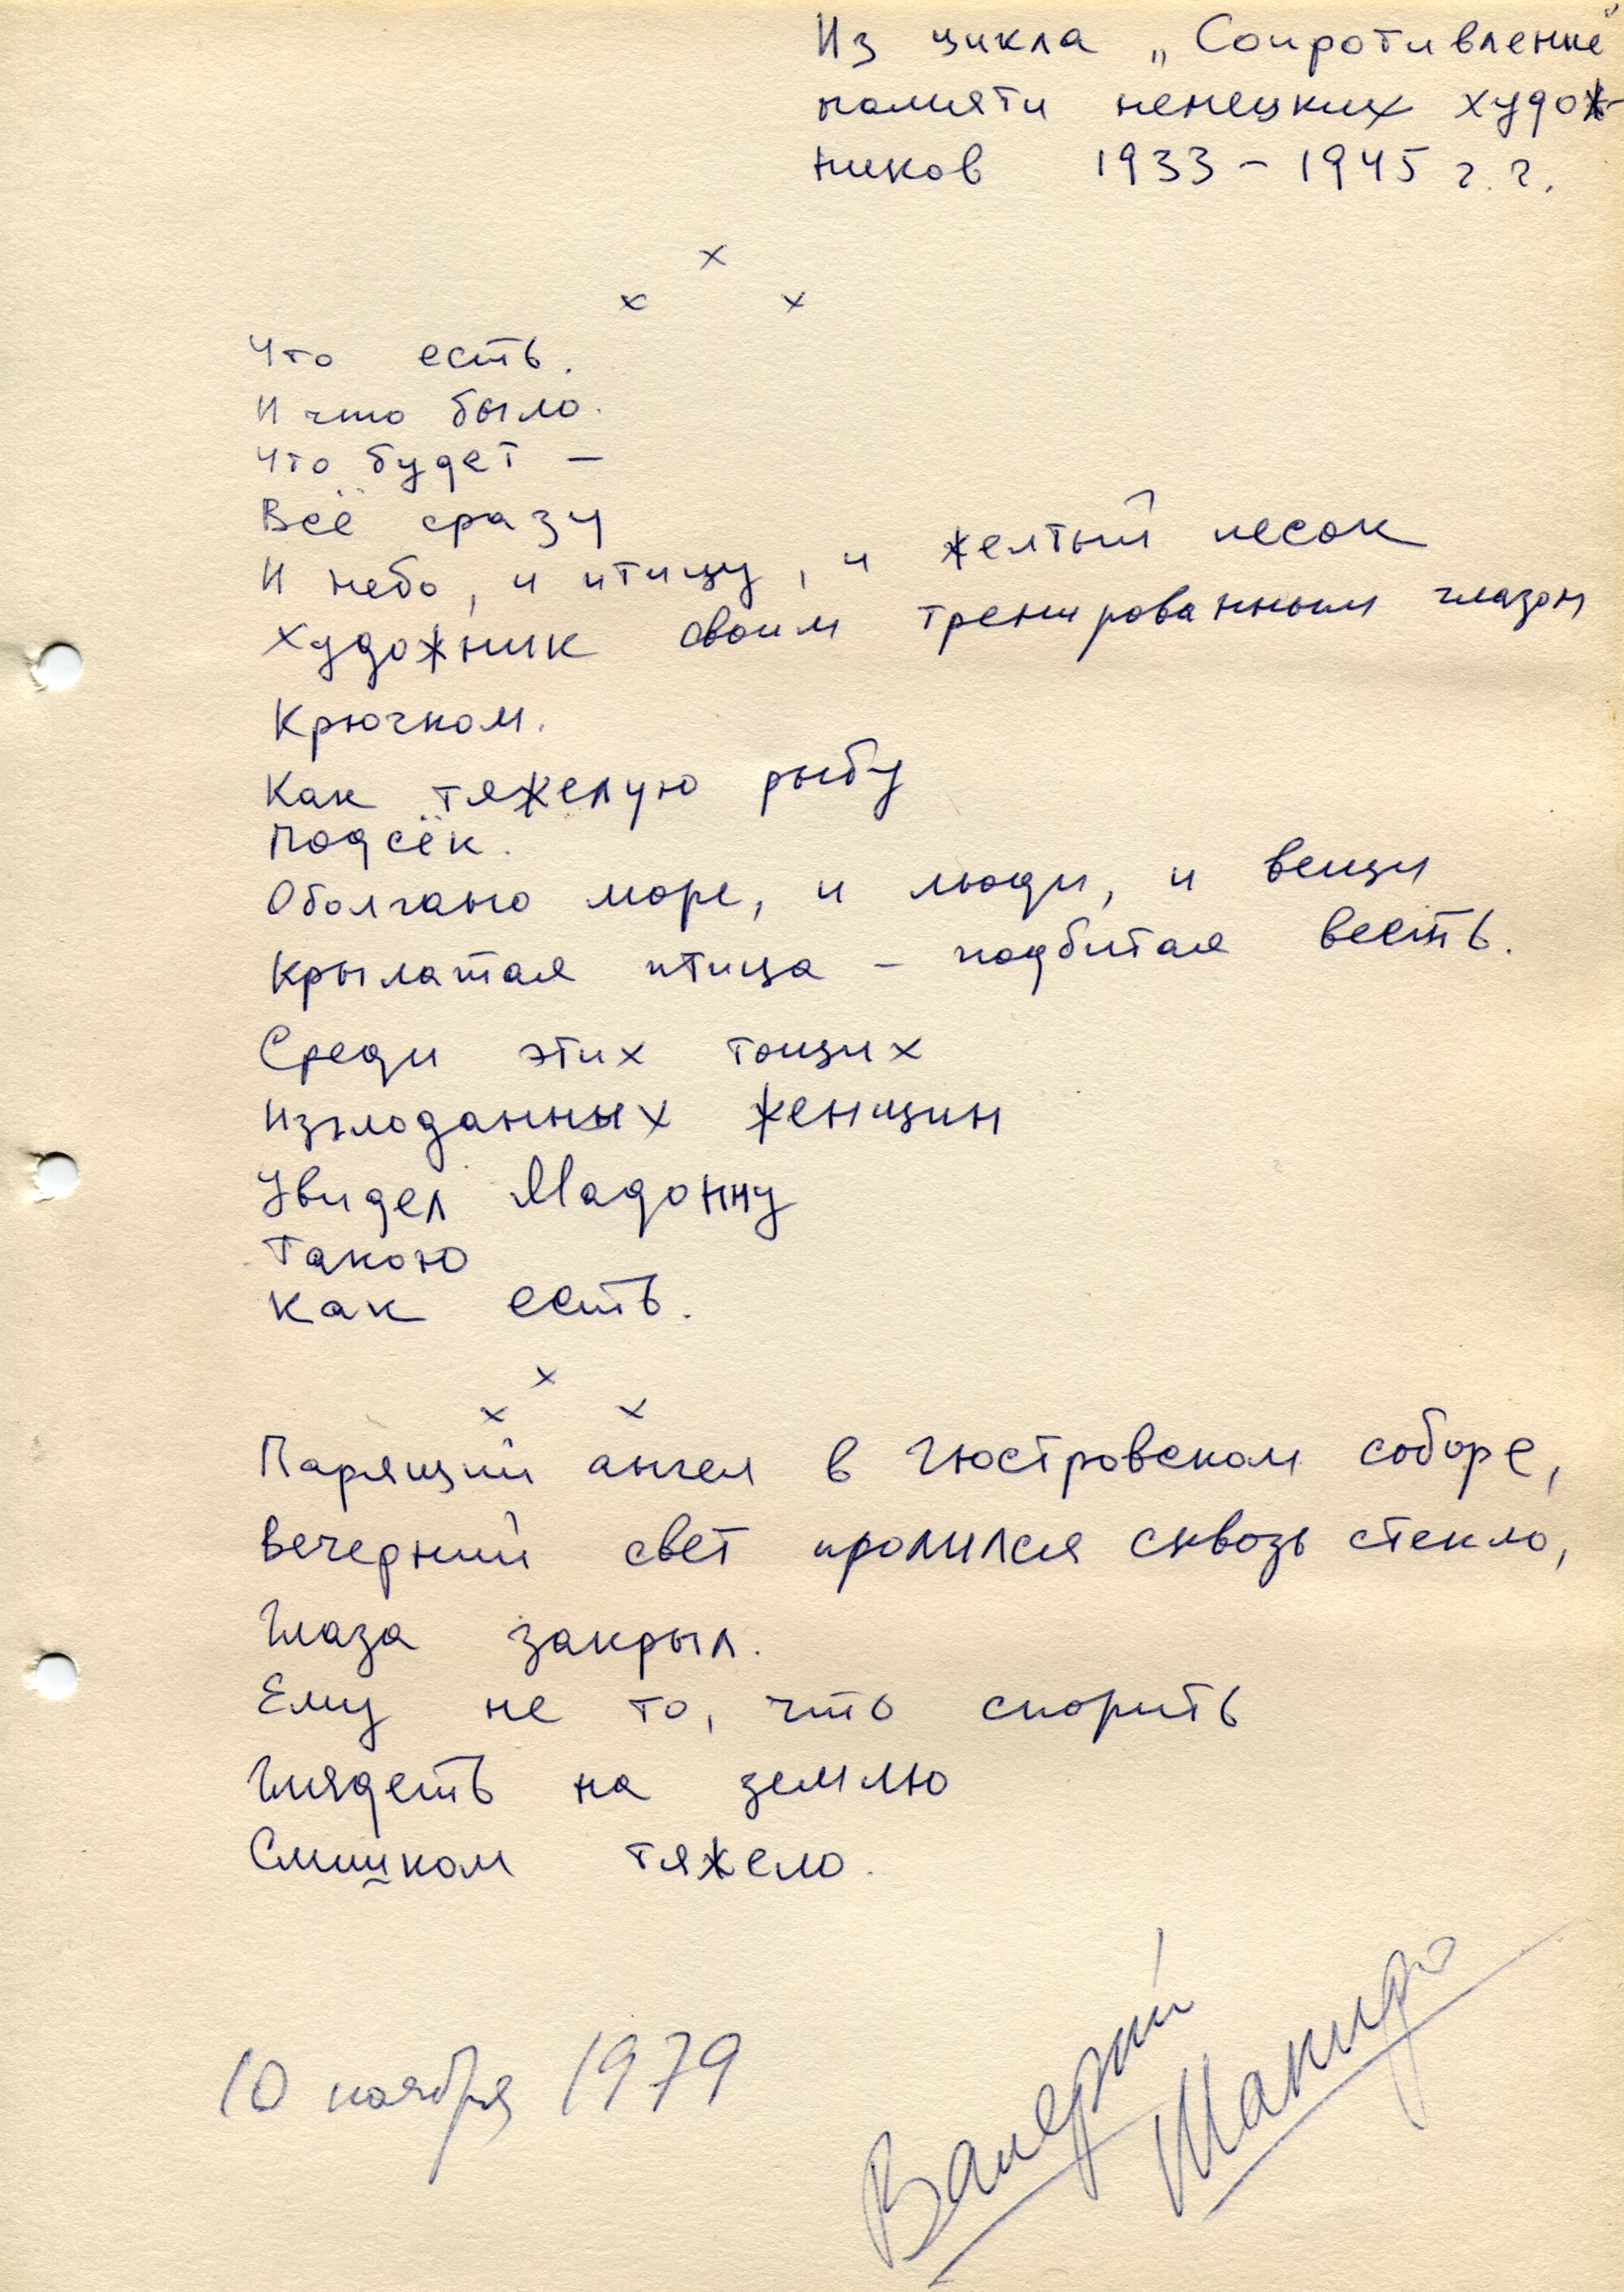 Из цикла „Сопротивление"
памяти немецких худож-
ников 1933 – 1945 г.г.
x
x x
Что есть.
И что было.
Что будет –
Всё сразу
И небо, и птицу, и желтый песок
Художник своим тренированным глазом
Крючком.
Как тяжелую рыбу
Подсёк.
Оболгано море, и люди, и вещи
Крылатая птица – подбитая весть.
Среди этих тощих
Изглоданных женщин
Увидел Мадонну
Такою
Как есть.
x
x x
Парящий ангел в Гюстровском соборе,
Вечерний свет пролился сквозь стекло,
Глаза закрыл.
Ему не то, что спорить
Глядеть на землю
Слишком тяжело.
10 ноября 1979
Валерий